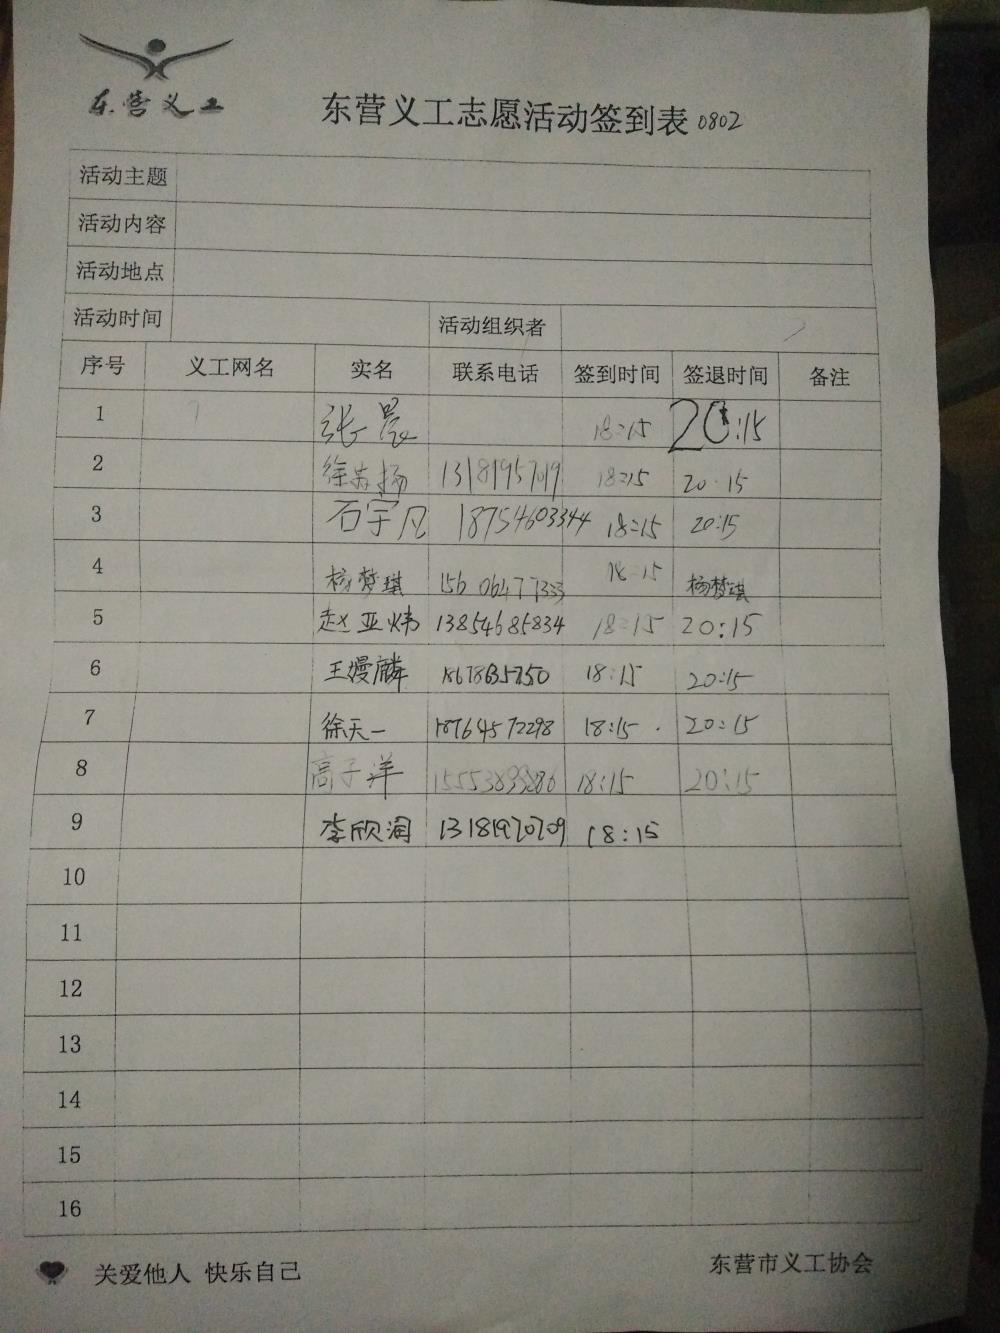 东营义工
东营义工志愿活动签到表 0802
活动主题
活动内容
活动地点
活动时间 活动组织者
序号 义工网名 实名 联系电话 签到时间 签退时间 备注
1 张晨 18:15 20:15
2 徐 扬 18:15 20:15
3 石宇凡 18754603344 18:15 20:15
4 杨梦琪 15606477333 18:15 杨梦琪
5 赵亚炜 13854685834 18:15 20:15
6 王嫚麟 18:15 20:15
7 徐天一 18764572298 18:15 20:15
8 高子洋 18:15 20:15
9 李欣润 13181970709 18:15
10
11
12
13
14
15
16
关爱他人 快乐自己
东营市义工协会